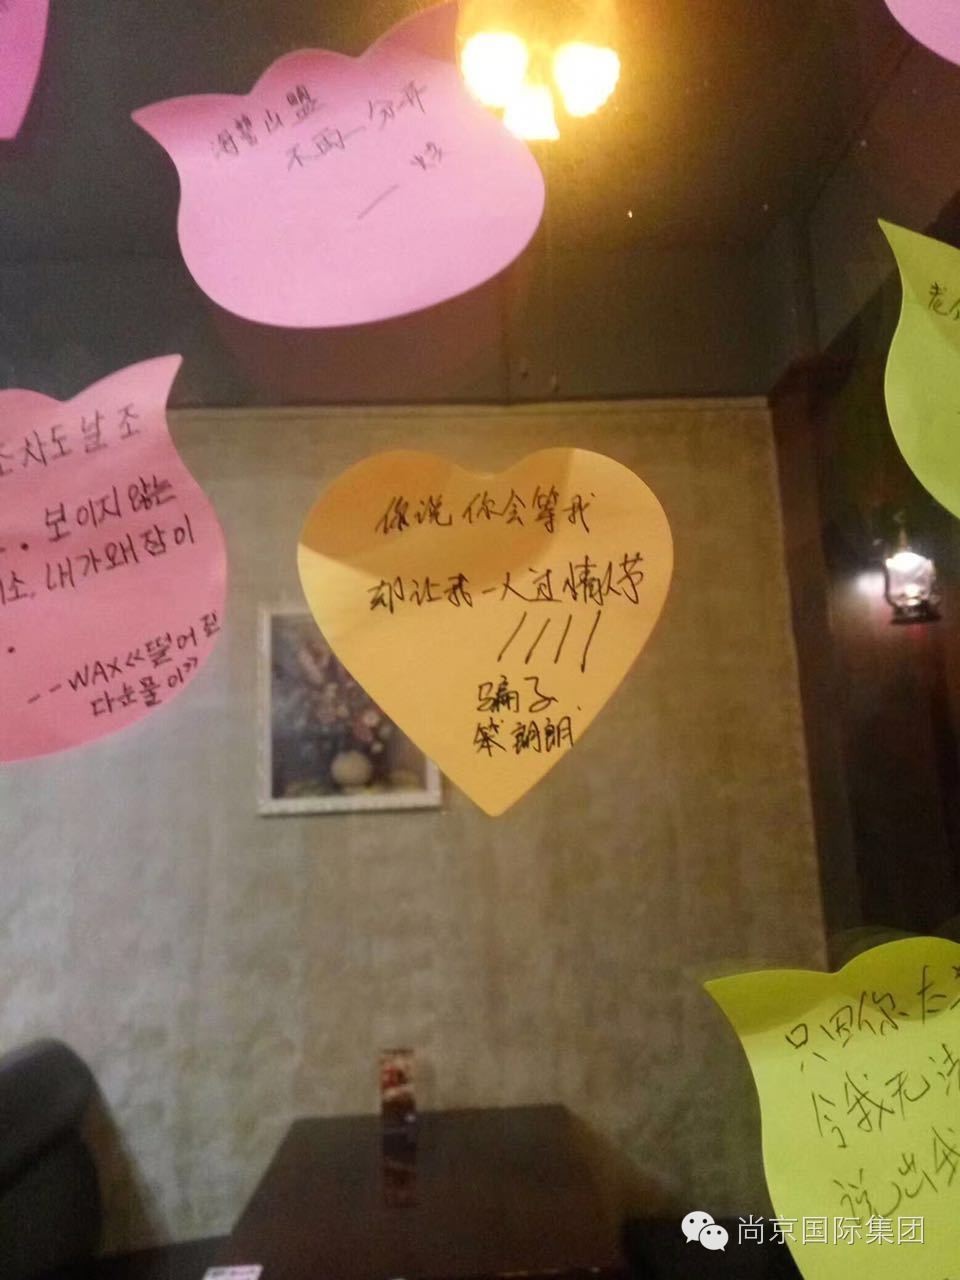 海誓山盟
不再分开
조차도 날 조
보이지 않는
내가 왜 잠이
--WAX《떨어진
다 눈물이》
你说你会等我
却让我一人过情人节
////
骗子.
笨朗朗
老公
只因你太
令我无法
说出我
尚京国际集团